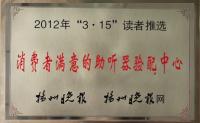 2012年“3·15”读者推选
消费者满意的助听器验配中心
扬州晚报 扬州晚报网